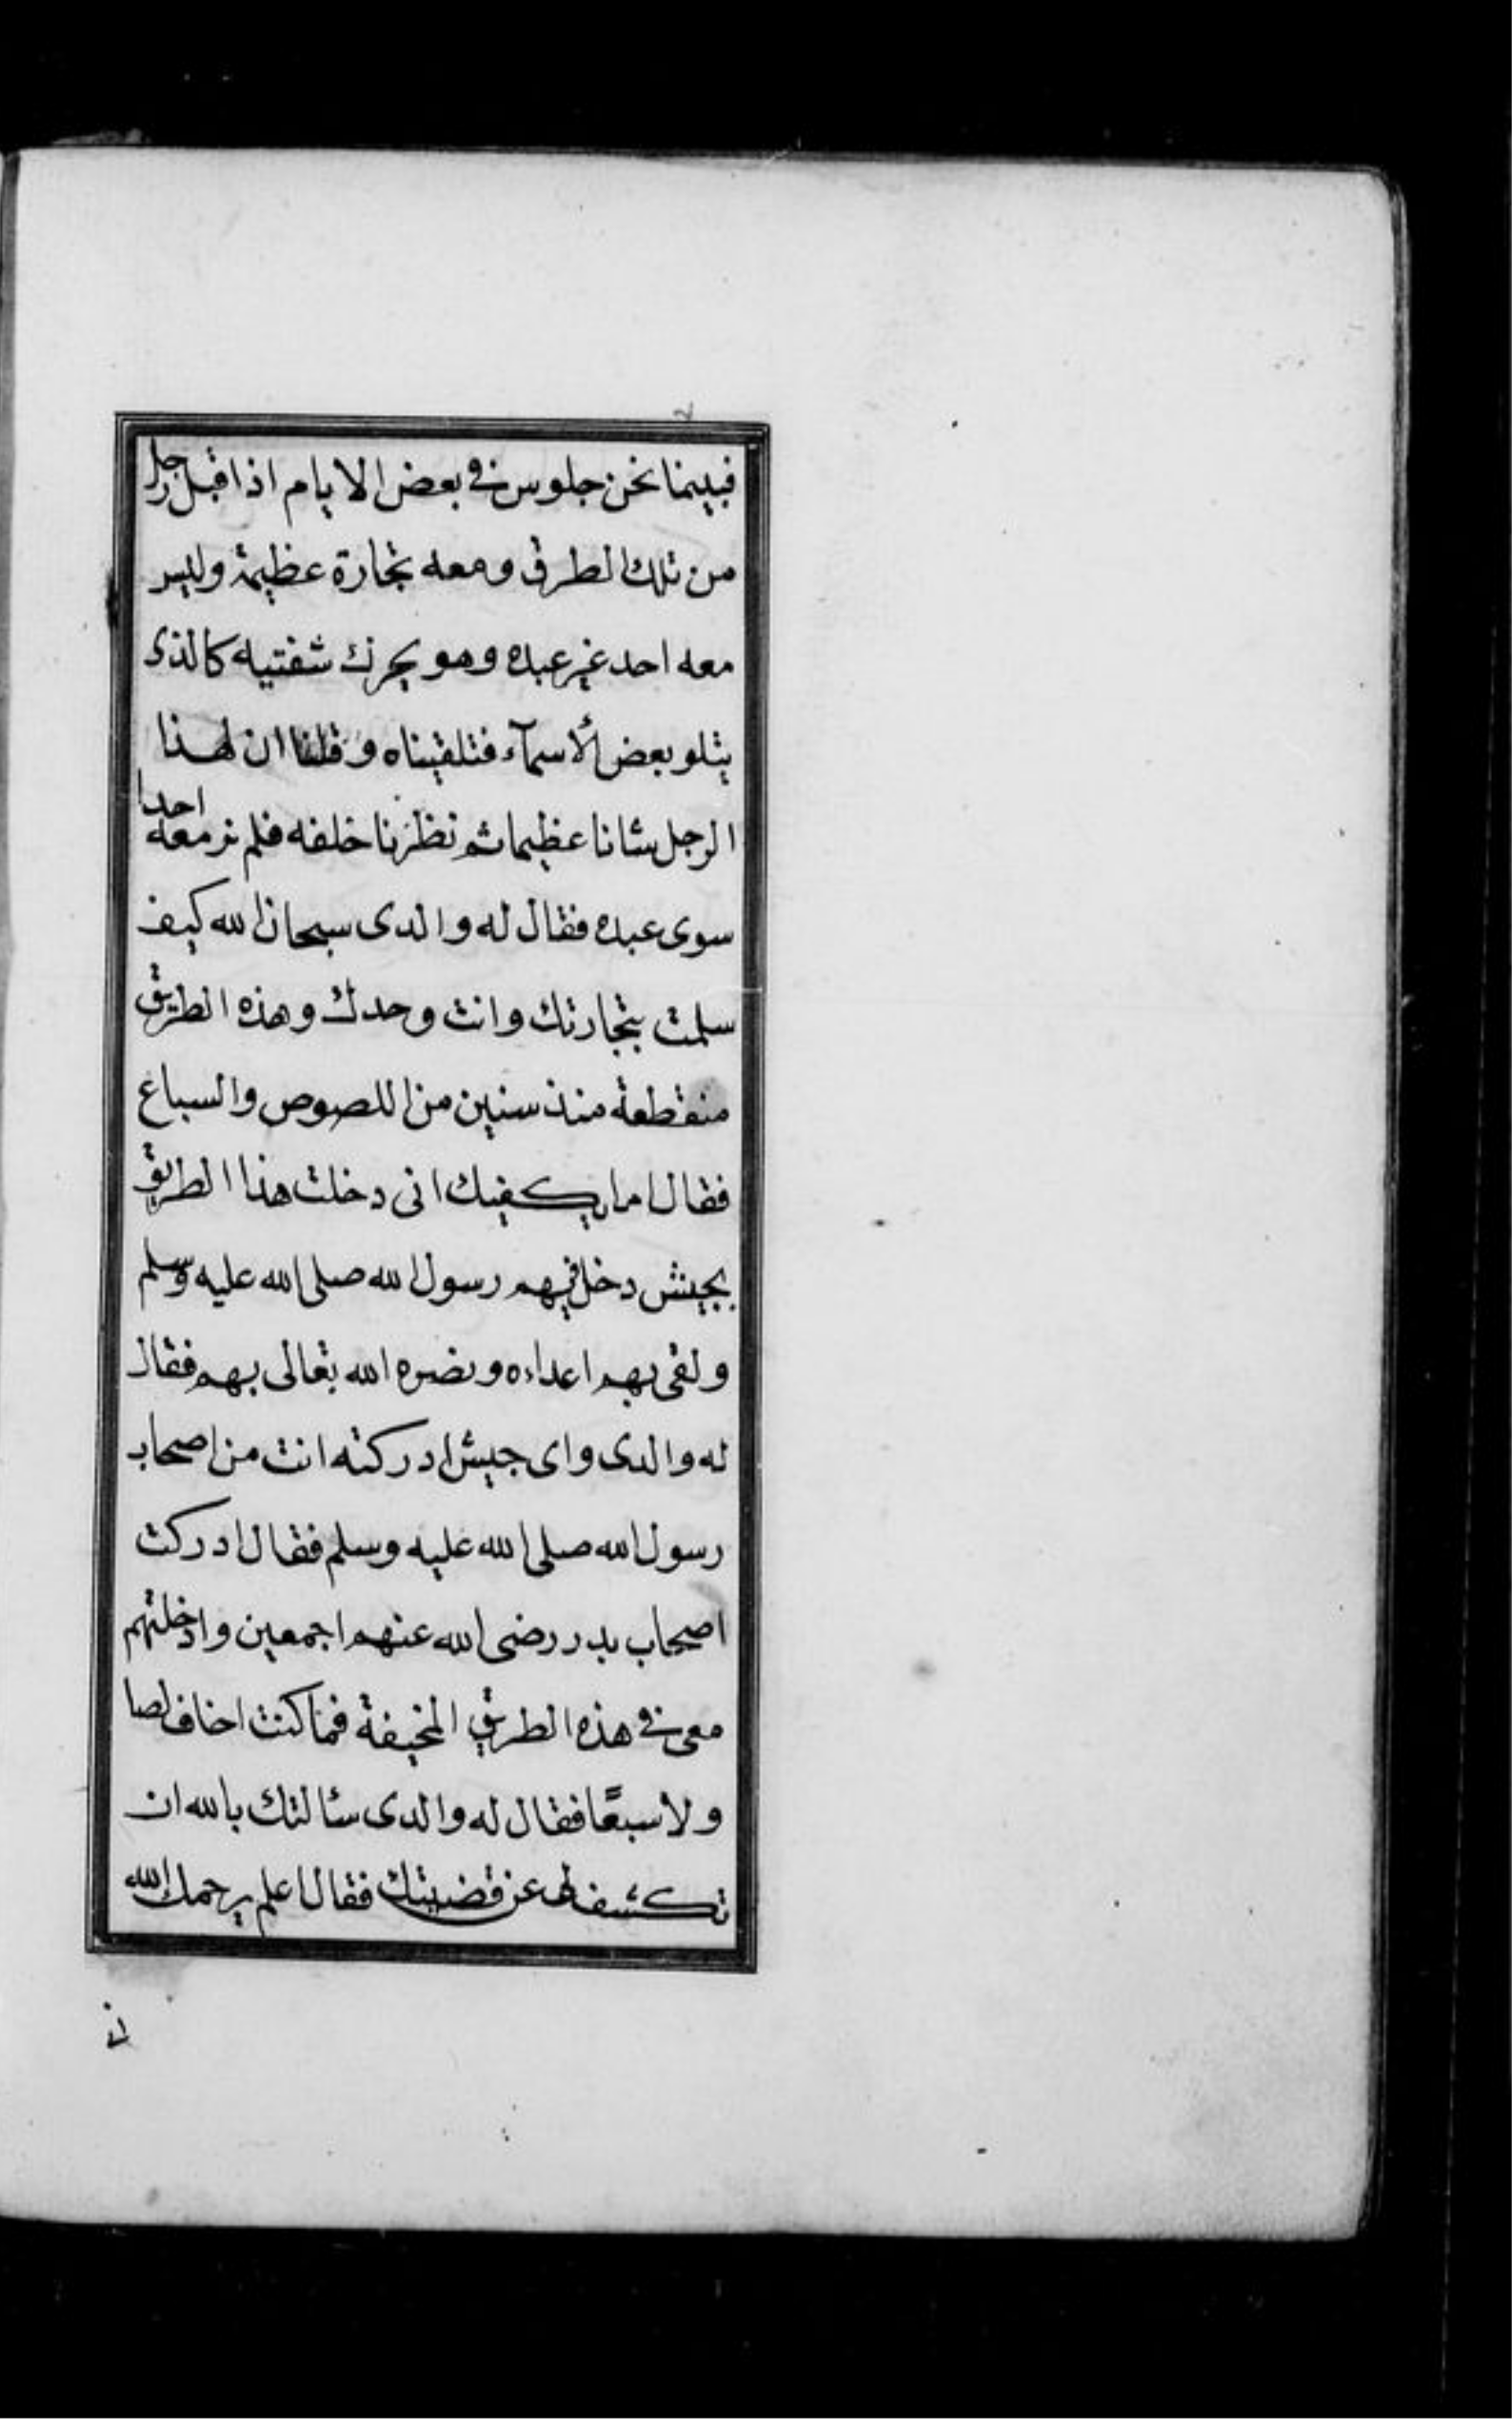 فبينما نحن جلوس في بعض الايام اذ اقبل رجل
من تلك الطرق ومعه تجارة عظيمة وليس
معه احد غير عبده وهو يحرك شفتيه كالذى
يتلو بعض الأسمآء فتلقيناه وقلنا ان لهذا
الرجل شانا عظيما ثم نظرنا خلفه فلم نر معه احدا
سوى عبده فقال له والدى سبحان الله كيف
سلمت بتجارتك وانت وحدك وهذه الطريق
منقطعة منذ سنين من اللصوص والسباع
فقال اما يكفيك انى دخلت هذا الطريق
بجيش دخل فيهم رسول الله صلى الله عليه وسلم
ولقى بهم اعداءه ونصره الله تعالى بهم فقال
له والدى واى جيش ادركته انت من اصحاب
رسول الله صلى الله عليه وسلم فقال ادركت
اصحاب بدر رضى الله عنهم اجمعين وادخلتهم
معى في هذه الطريق المخيفة فما كنت اخاف لصا
ولا سبعًا فقال له والدى سئالتك بالله ان
تكشف لى عن قضيتك فقال اعلم يرحمك الله